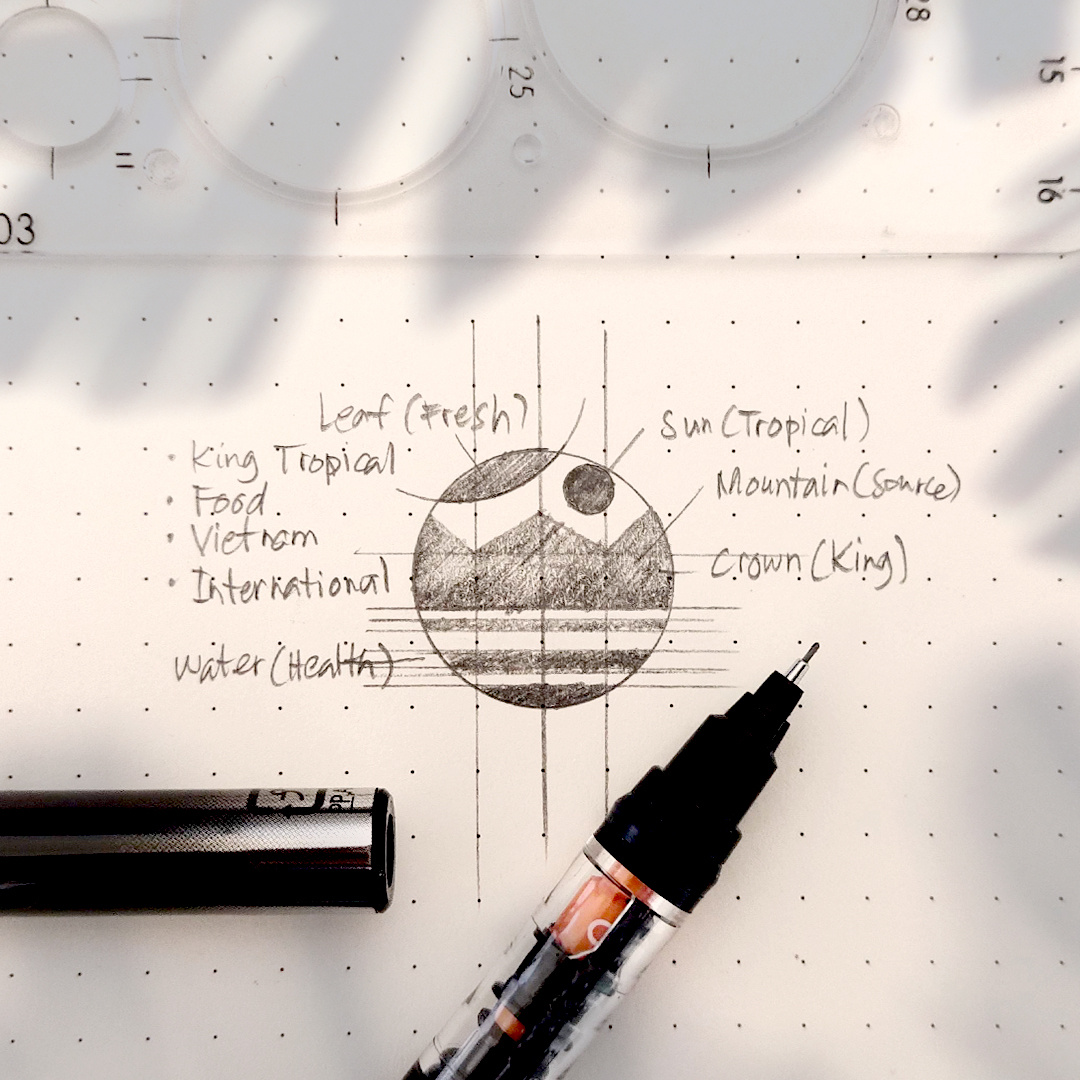 28
15
25
11
16
03
Leaf (Fresh)
Sun (Tropical)
• King Tropical
Mountain (Source)
• Food
• Vietnam
Crown (King)
• International
Water (Health)